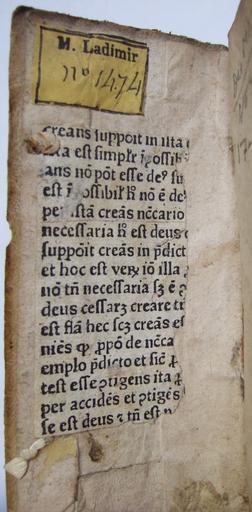 M. Ladimir
nº 1474
creans suppoit in ista
ista est simplr īpossib
ans nō pōt esse deꝰ su
est īpossibilꝭ hō nō ē de
per istā creās nccario
necessaria hō est deus
supponit creās in pdict
et hoc est verū iō illa
nō tn̄ necessaria sꝫ ē
deus cessarꝫ creare tr
est flā hec scꝫ creās es
niēs ꝙ ppō de nēca
emplo pdicto et sic ꝗ
test esse ꝯtigens ita ꝗ
per accidēs et ꝯtigēs
se est deus ⁊ tn̄ est n